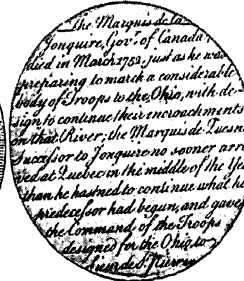 The Marquis de la
Jonquire, Govr. of Canada
died in March 1752. just as he was
preparing to march a considerable
body of Troops to the Ohio, with de-
sign to continue their encroachments
on that River; the Marquis de Quesne
Successor to Jonquere no sooner arri
ved at Quebec in the middle of the Ye
than he hastned to continue what h
predecessor had begun, and gave
the Command, of the Troops
designed for the Ohio, to